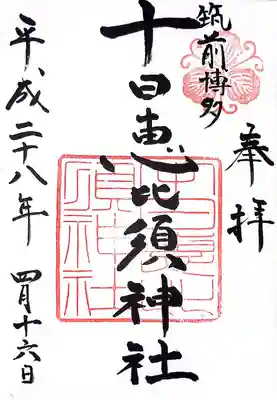 奉拝
筑前博多
十日恵比須神社
平成二十八年 四月十六日